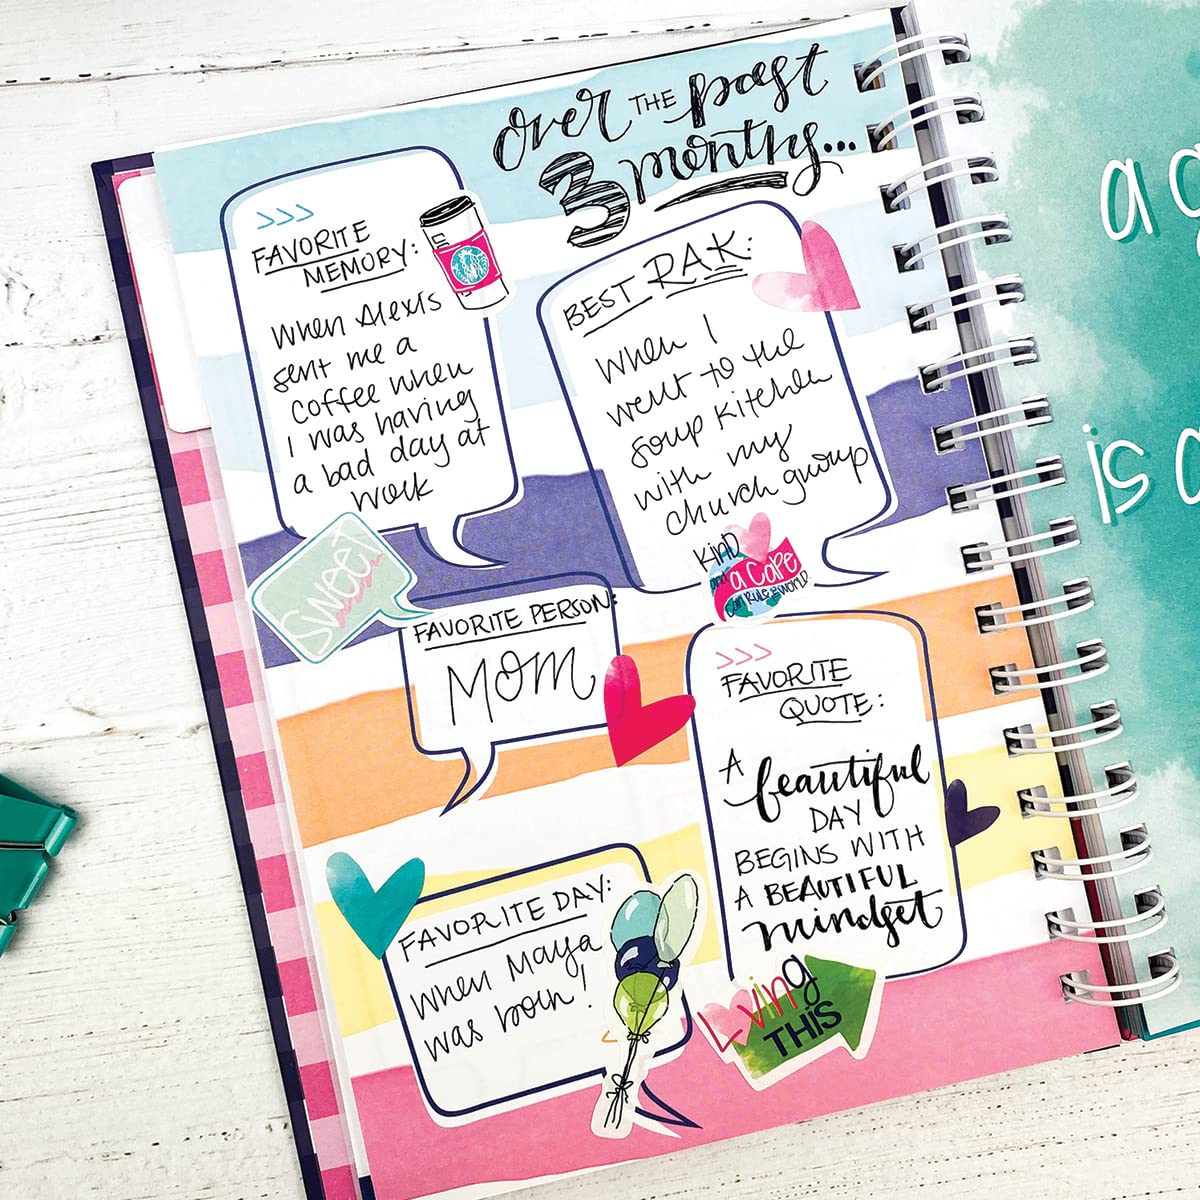 over THE past
3 months...
>>>
FAVORITE
MEMORY:
when Alexis
sent me a
coffee when
I was having
a bad day at
work
BEST RAK:
when I
went to the
soup kitchen
with my
church group
SWEET
KIND
and a CAPE
can RULE the WORLD
FAVORITE PERSON:
MOM
>>>
FAVORITE
QUOTE:
A beautiful
DAY
BEGINS WITH
A BEAUTIFUL
mindset
FAVORITE DAY:
when Maya
was born!
Loving
THIS
a g
is a